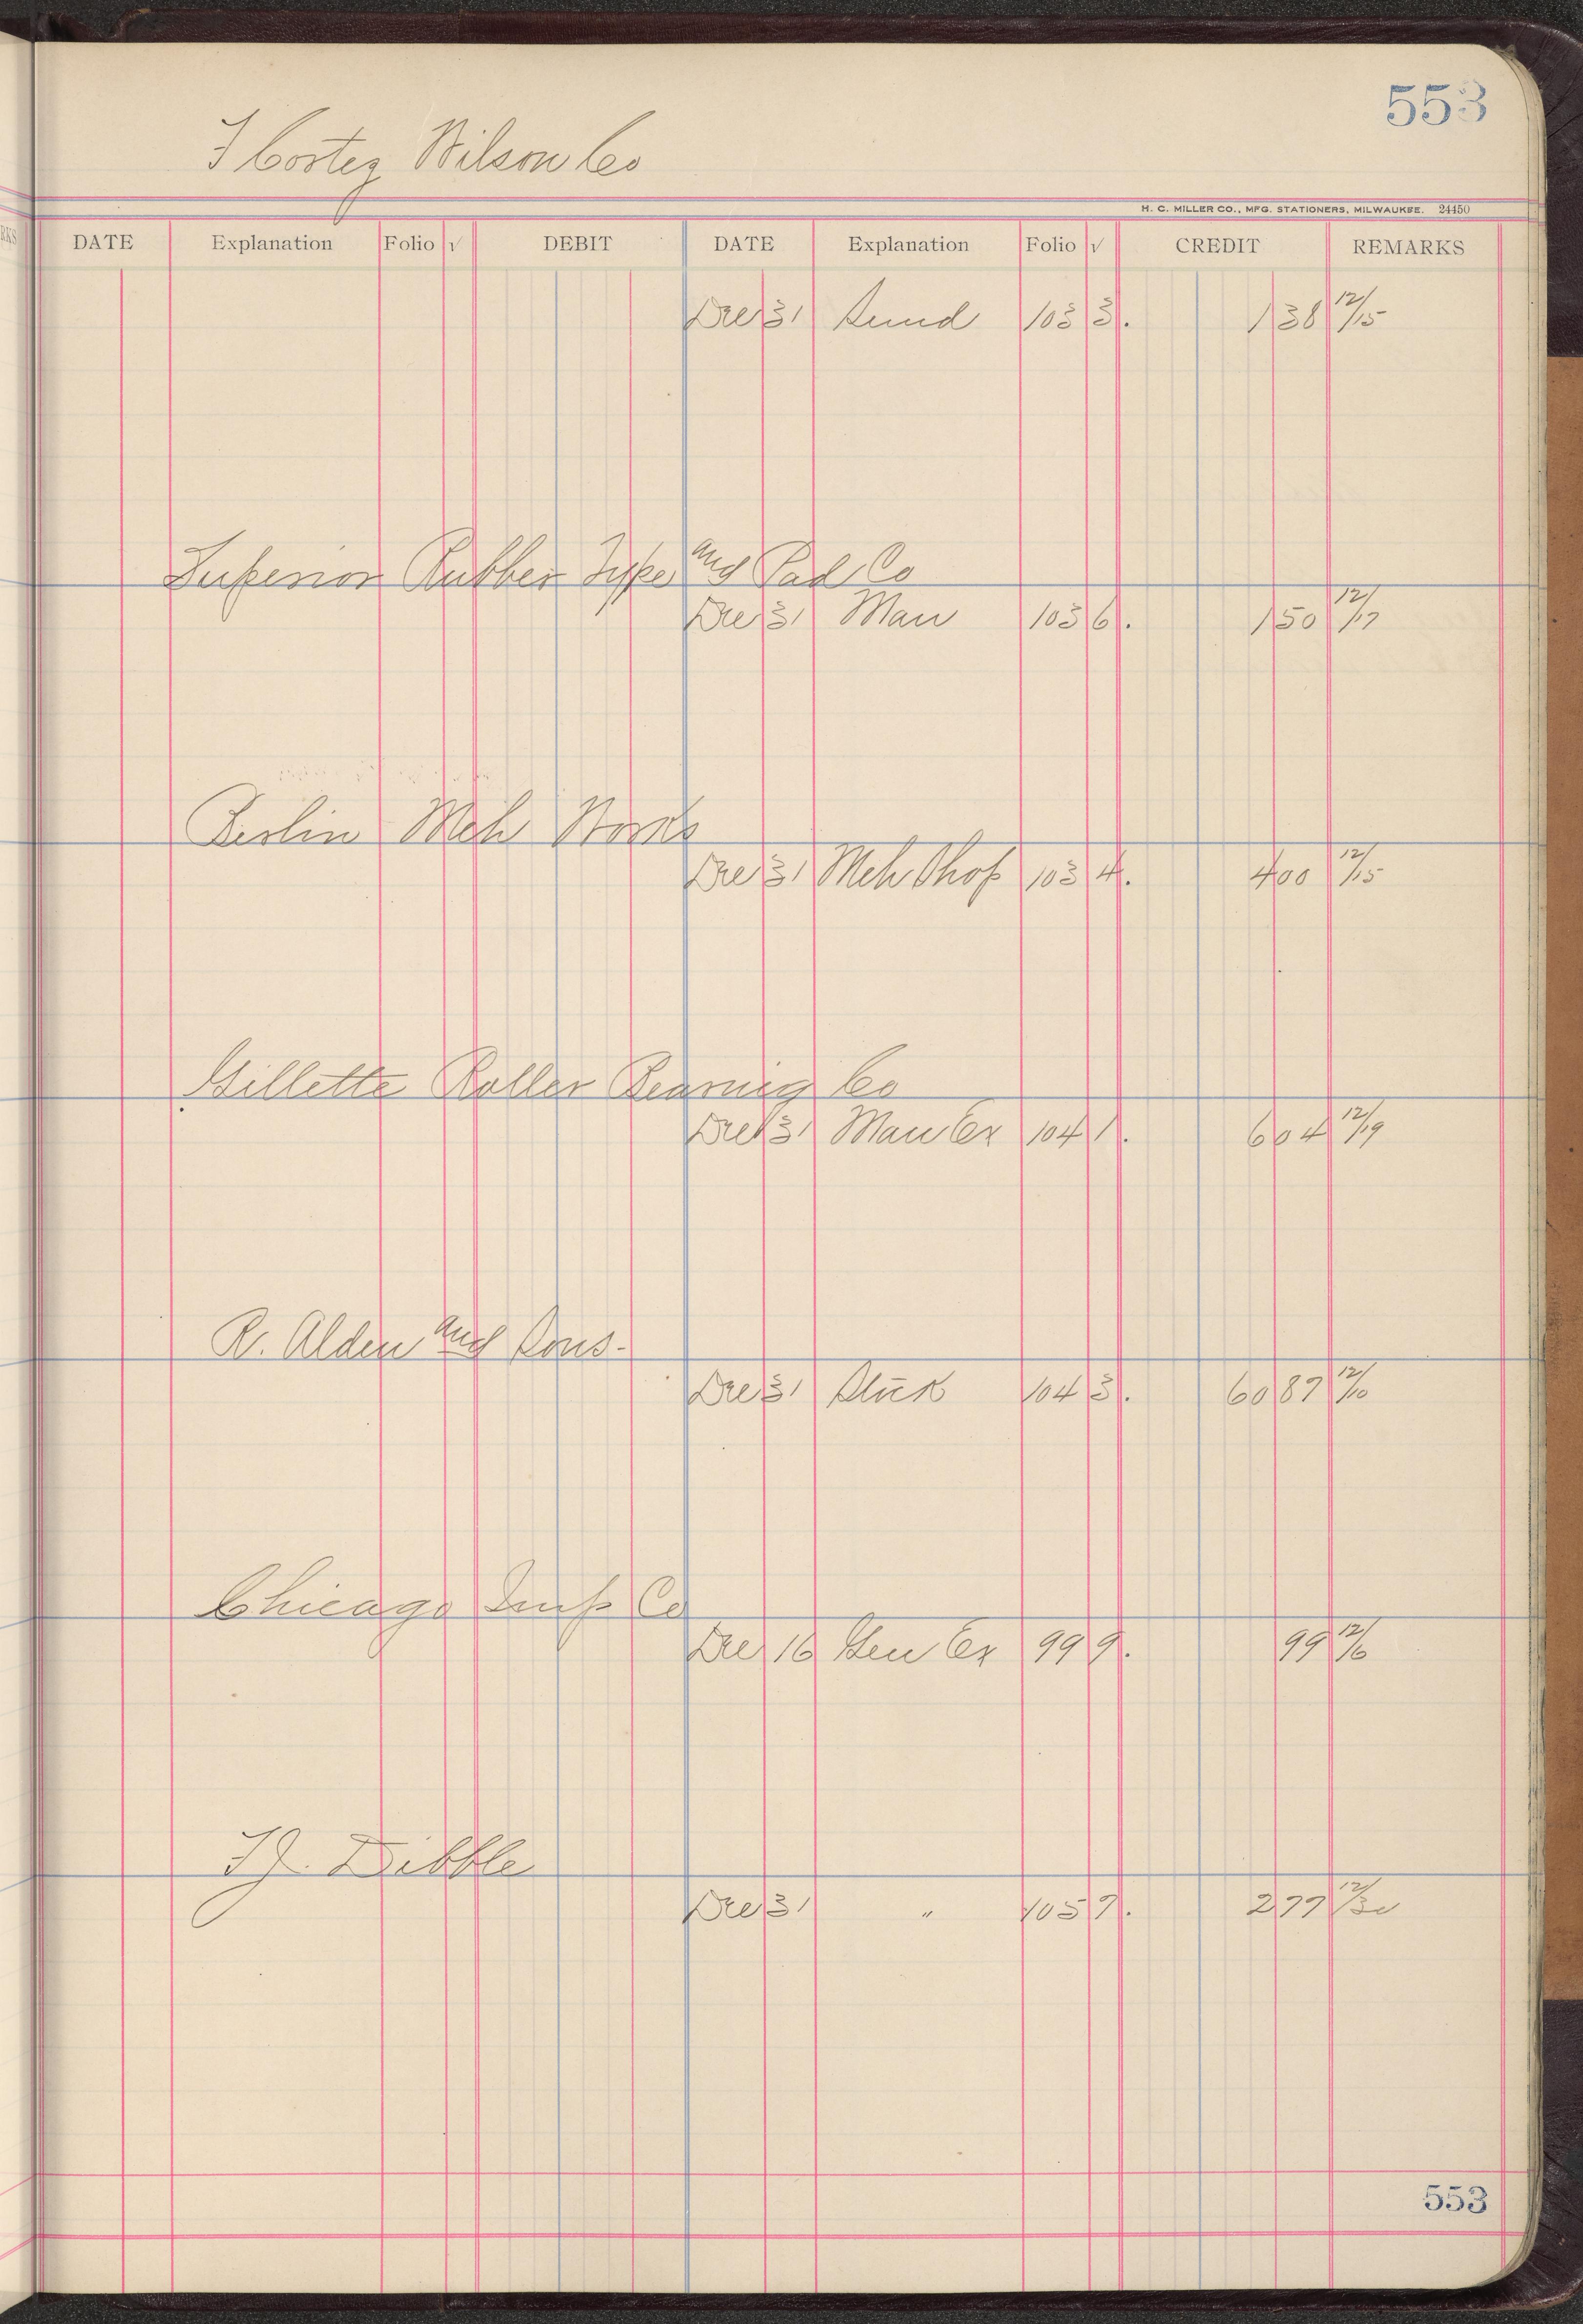 553
F Cortez Wilson Co
H. C. MILLER CO., MFG. STATIONERS, MILWAUKEE. 24450
DATE Explanation Folio √ DEBIT DATE Explanation Folio √ CREDIT REMARKS
Dec 31 Sund 1033. 138 12/15
Superior Rubber Type and Pad Co
Dec 31 Man 1036. 150 12/17
Berlin Mch Works
Dec 31 Mch Shop 1034. 400 12/15
Gillette Roller Bearing Co
Dec 31 Man Ex 1041. 604 12/19
R. Alden and Sons-
Dec 31 Stick 1043. 6087 12/10
Chicago Imp Co
Dec 16 Gen Ex 999. 99 12/6
Dibble
Dec 31 " 1057. 277 12/30
553